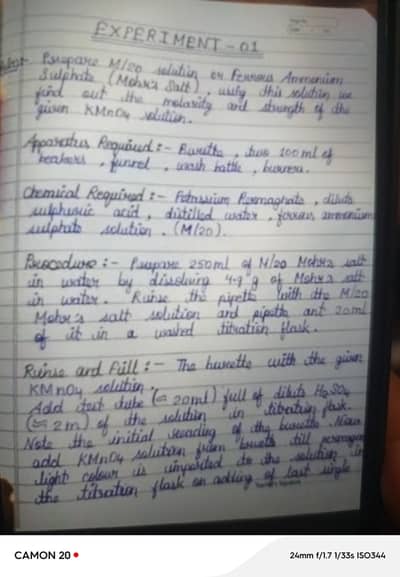 EXPERIMENT - 01
Prepare M/20 solution on Ferrous Ammonium
Sulphate (Mohr's Salt), using this solution we
find out the molarity and strength of the
given KMnO4 solution.
Apparatus Required :- Burette, two 100ml of
beakers, funnel, wash bottle, burners.
Chemical Required :- Potassium Permagnate, dilute
sulphuric acid, distilled water, ferrous ammonium
sulphate solution. (M/20).
Procedure :- Prepare 250ml of M/20 Mohr's salt
in water by dissolving 4.9 g of Mohr's salt
in water. Rinse the pipette with the M/20
Mohr's salt solution and pipette ant 20ml
of it in a washed titration flask.
Rinse and Fill :- The burette with the given
KMnO4 solution.
Add test tube (= 20ml) full of dilute H2SO4
(= 2m) of the solution in titration flask.
Note the initial reading of the burette. Now
add KMnO4 solution from burette till permanent
light colour is imparted to the solution in
the titration flask on adding of last single
CAMON 20
24mm f/1.7 1/33s ISO344